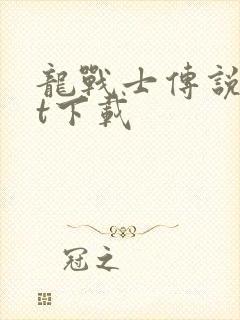 龍戰士傳說
t下載
冠之